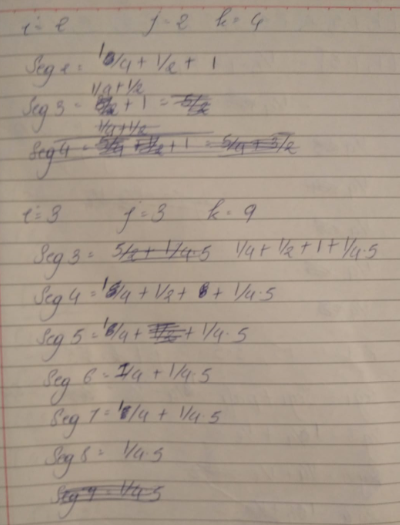 i=2 j=2 k=4
Seg 2 = 1/4 + 1/2 + 1
1/4+1/2
Seg 3 = + 1 =
1/4+1/2
Seg 4 = 5/4 + 1/2 + 1 = 5/4 + 3/2
i=3 j=3 k=9
Seg 3 = 5/2 + 1/4.5 1/4 + 1/2 + 1 + 1/4.5
Seg 4 = 1/4 + 1/2 + + 1/4.5
Seg 5 = 1/4 + 1/4.5
Seg 6 = 1/4 + 1/4.5
Seg 7 = 1/4 + 1/4.5
Seg 8 = 1/4.5
Seg 9 = 1/4.5